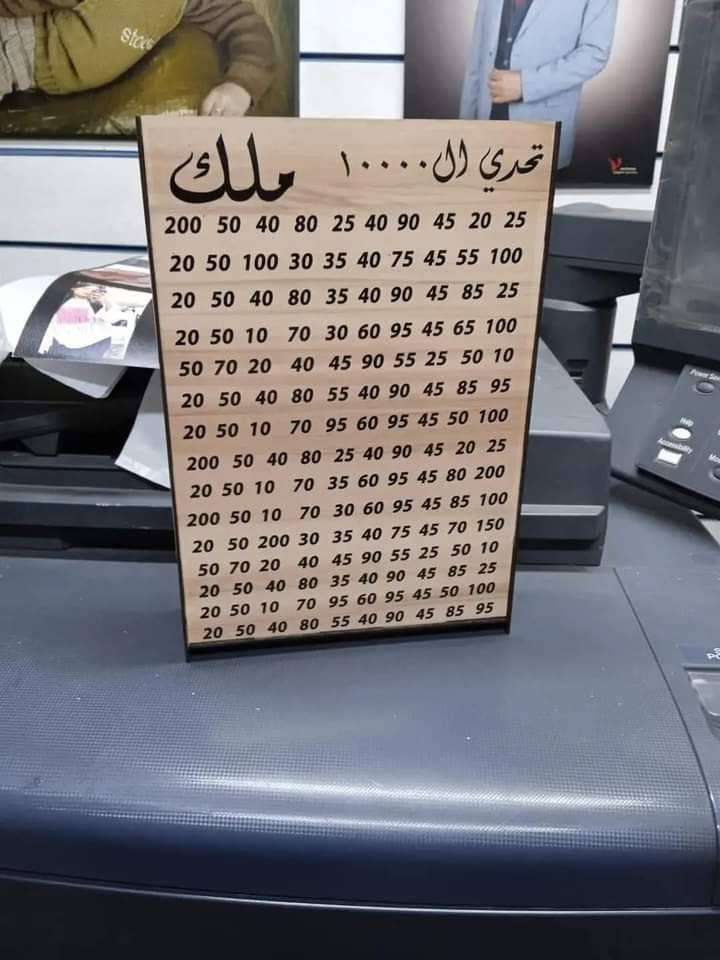 stood
تحدي ال ١٠٠٠٠ ملك
200 50 40 80 25 40 90 45 20 25
20 50 100 30 35 40 75 45 55 100
20 50 40 80 35 40 90 45 85 25
20 50 10 70 30 60 95 45 65 100
50 70 20 40 45 90 55 25 50 10
20 50 40 80 55 40 90 45 85 95
20 50 10 70 95 60 95 45 50 100
200 50 40 80 25 40 90 45 20 25
20 50 10 70 35 60 95 45 80 200
200 50 10 70 30 60 95 45 85 100
20 50 200 30 35 40 75 45 70 150
50 70 20 40 45 90 55 25 50 10
20 50 40 80 35 40 90 45 85 25
20 50 10 70 95 60 95 45 50 100
20 50 40 80 55 40 90 45 85 95
Help
Accessibility